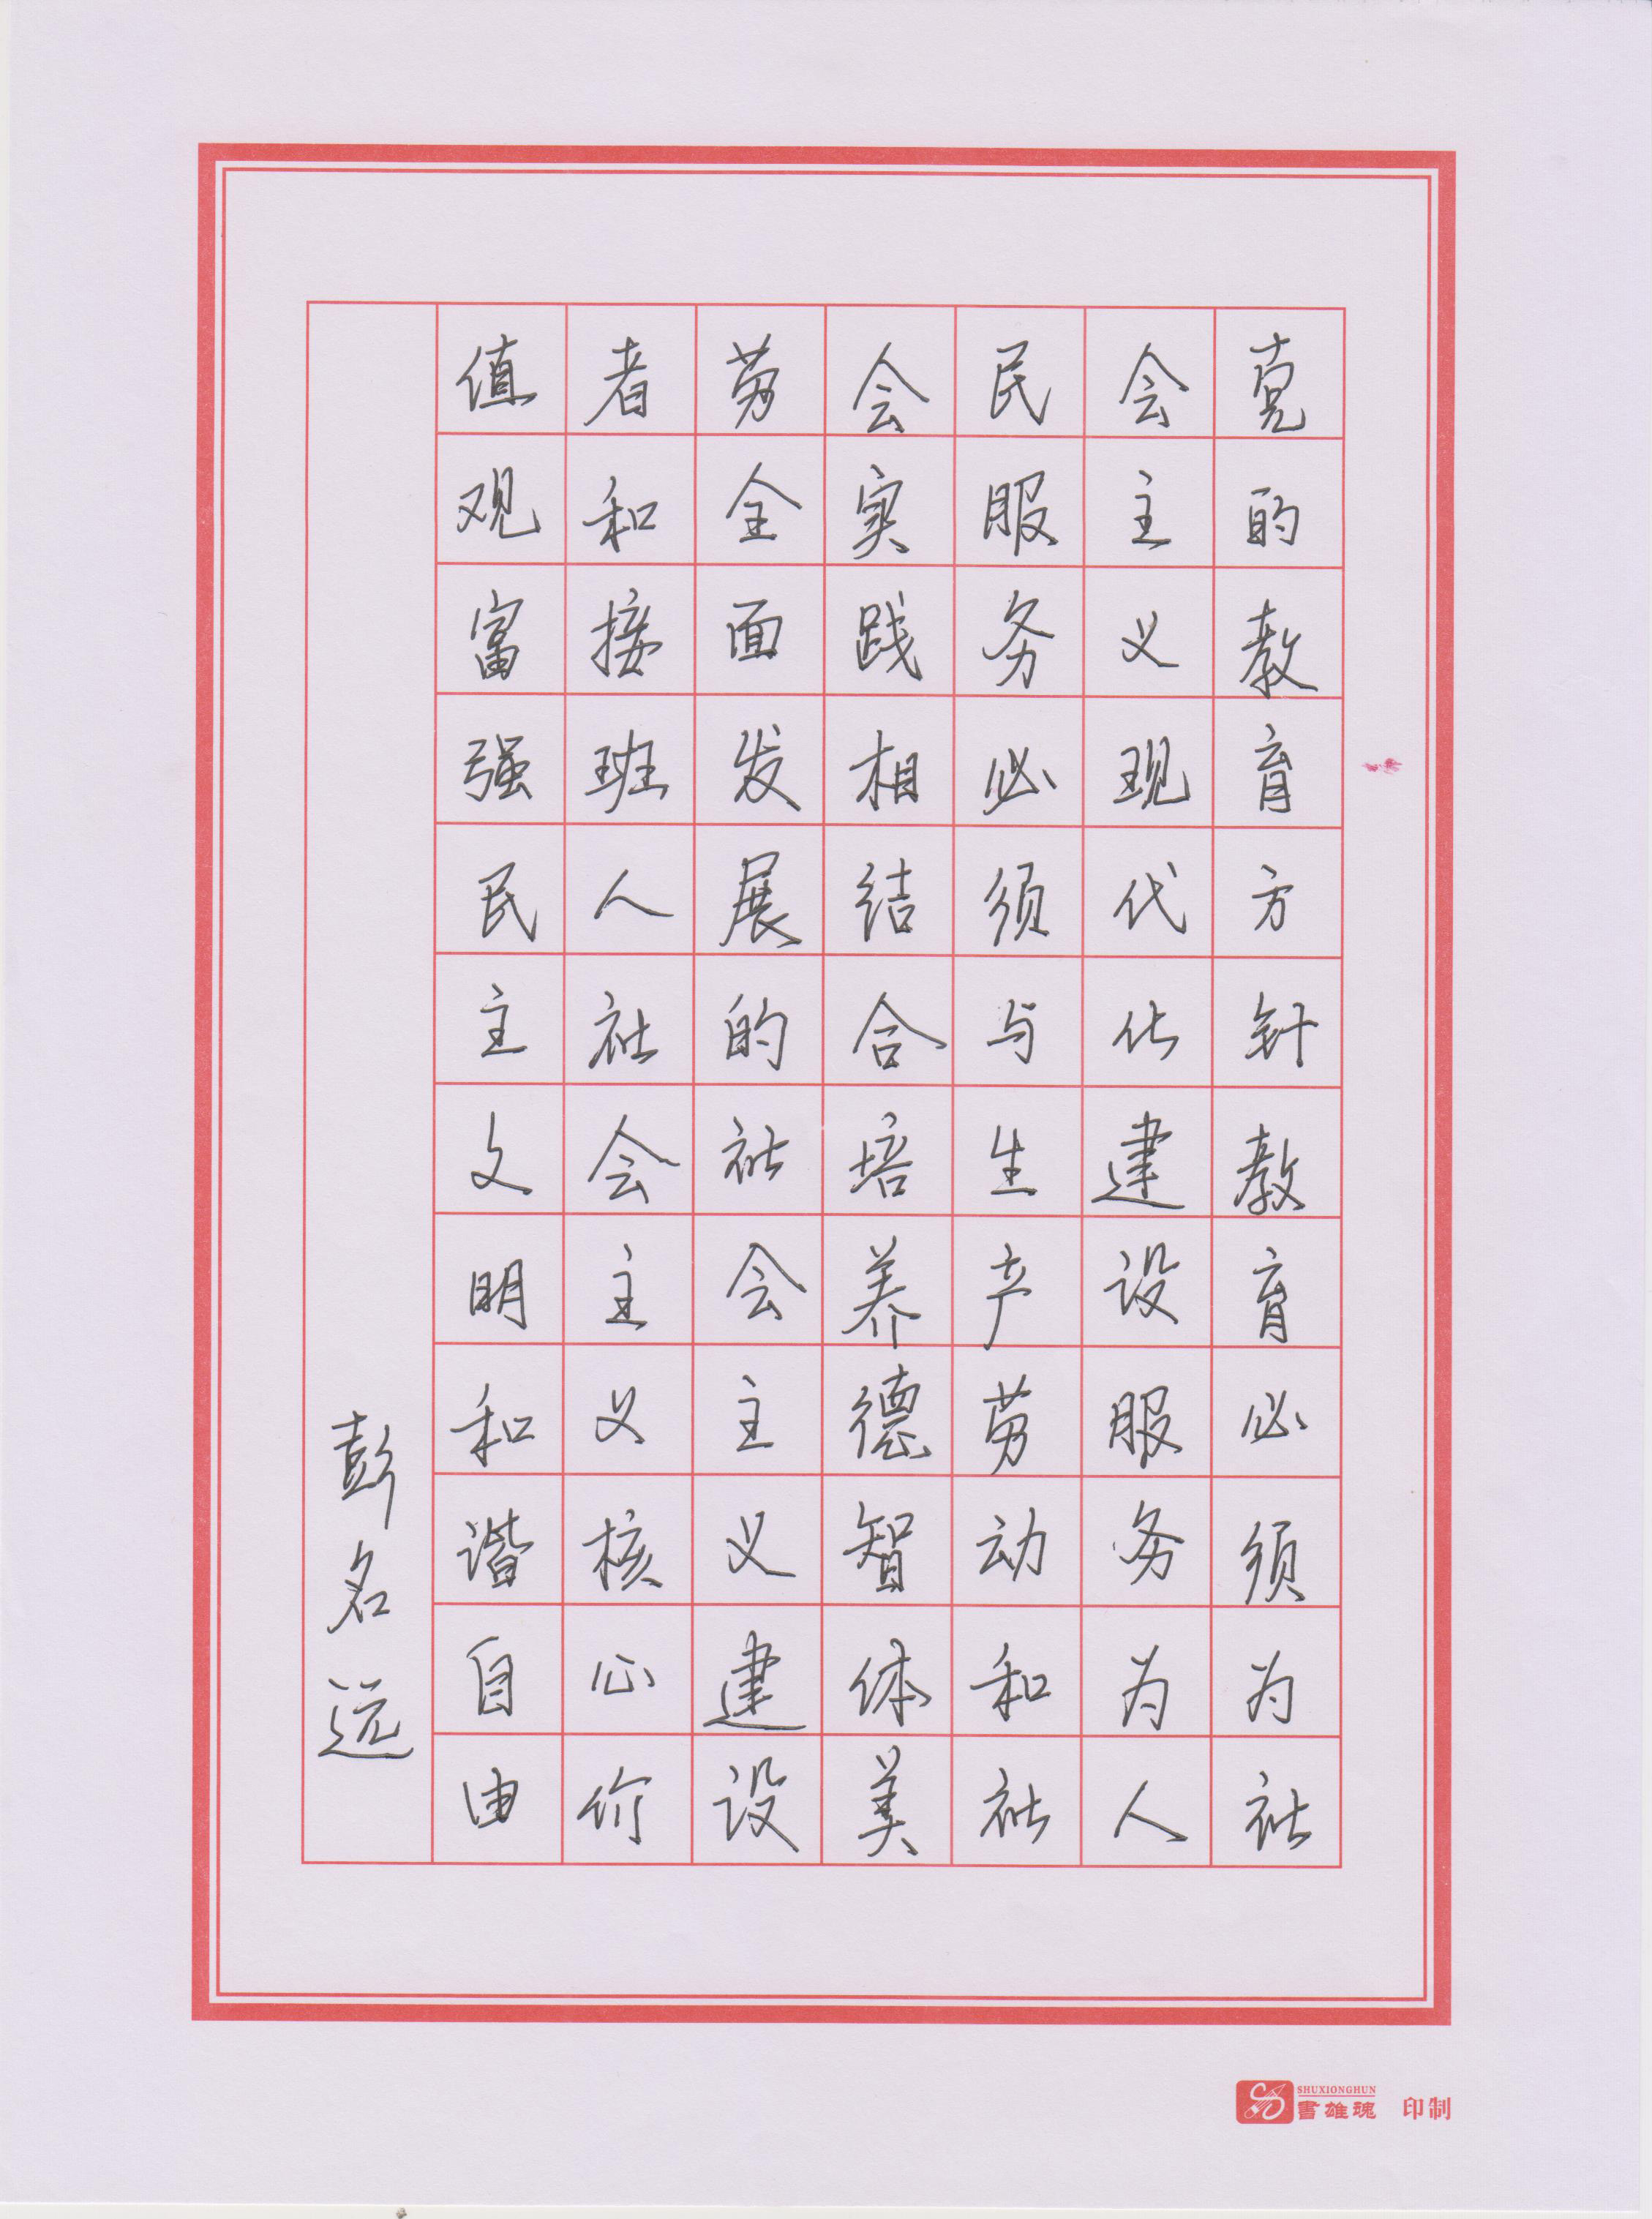 党的教育方针教育必须为社
会主义现代化建设服务为人
民服务必须与生产劳动和社
会实践相结合培养德智体美
劳全面发展的社会主义建设
者和接班人社会主义核心价
值观富强民主文明和谐自由
彭名远
SHUXIONGHUN
書雄魂 印制